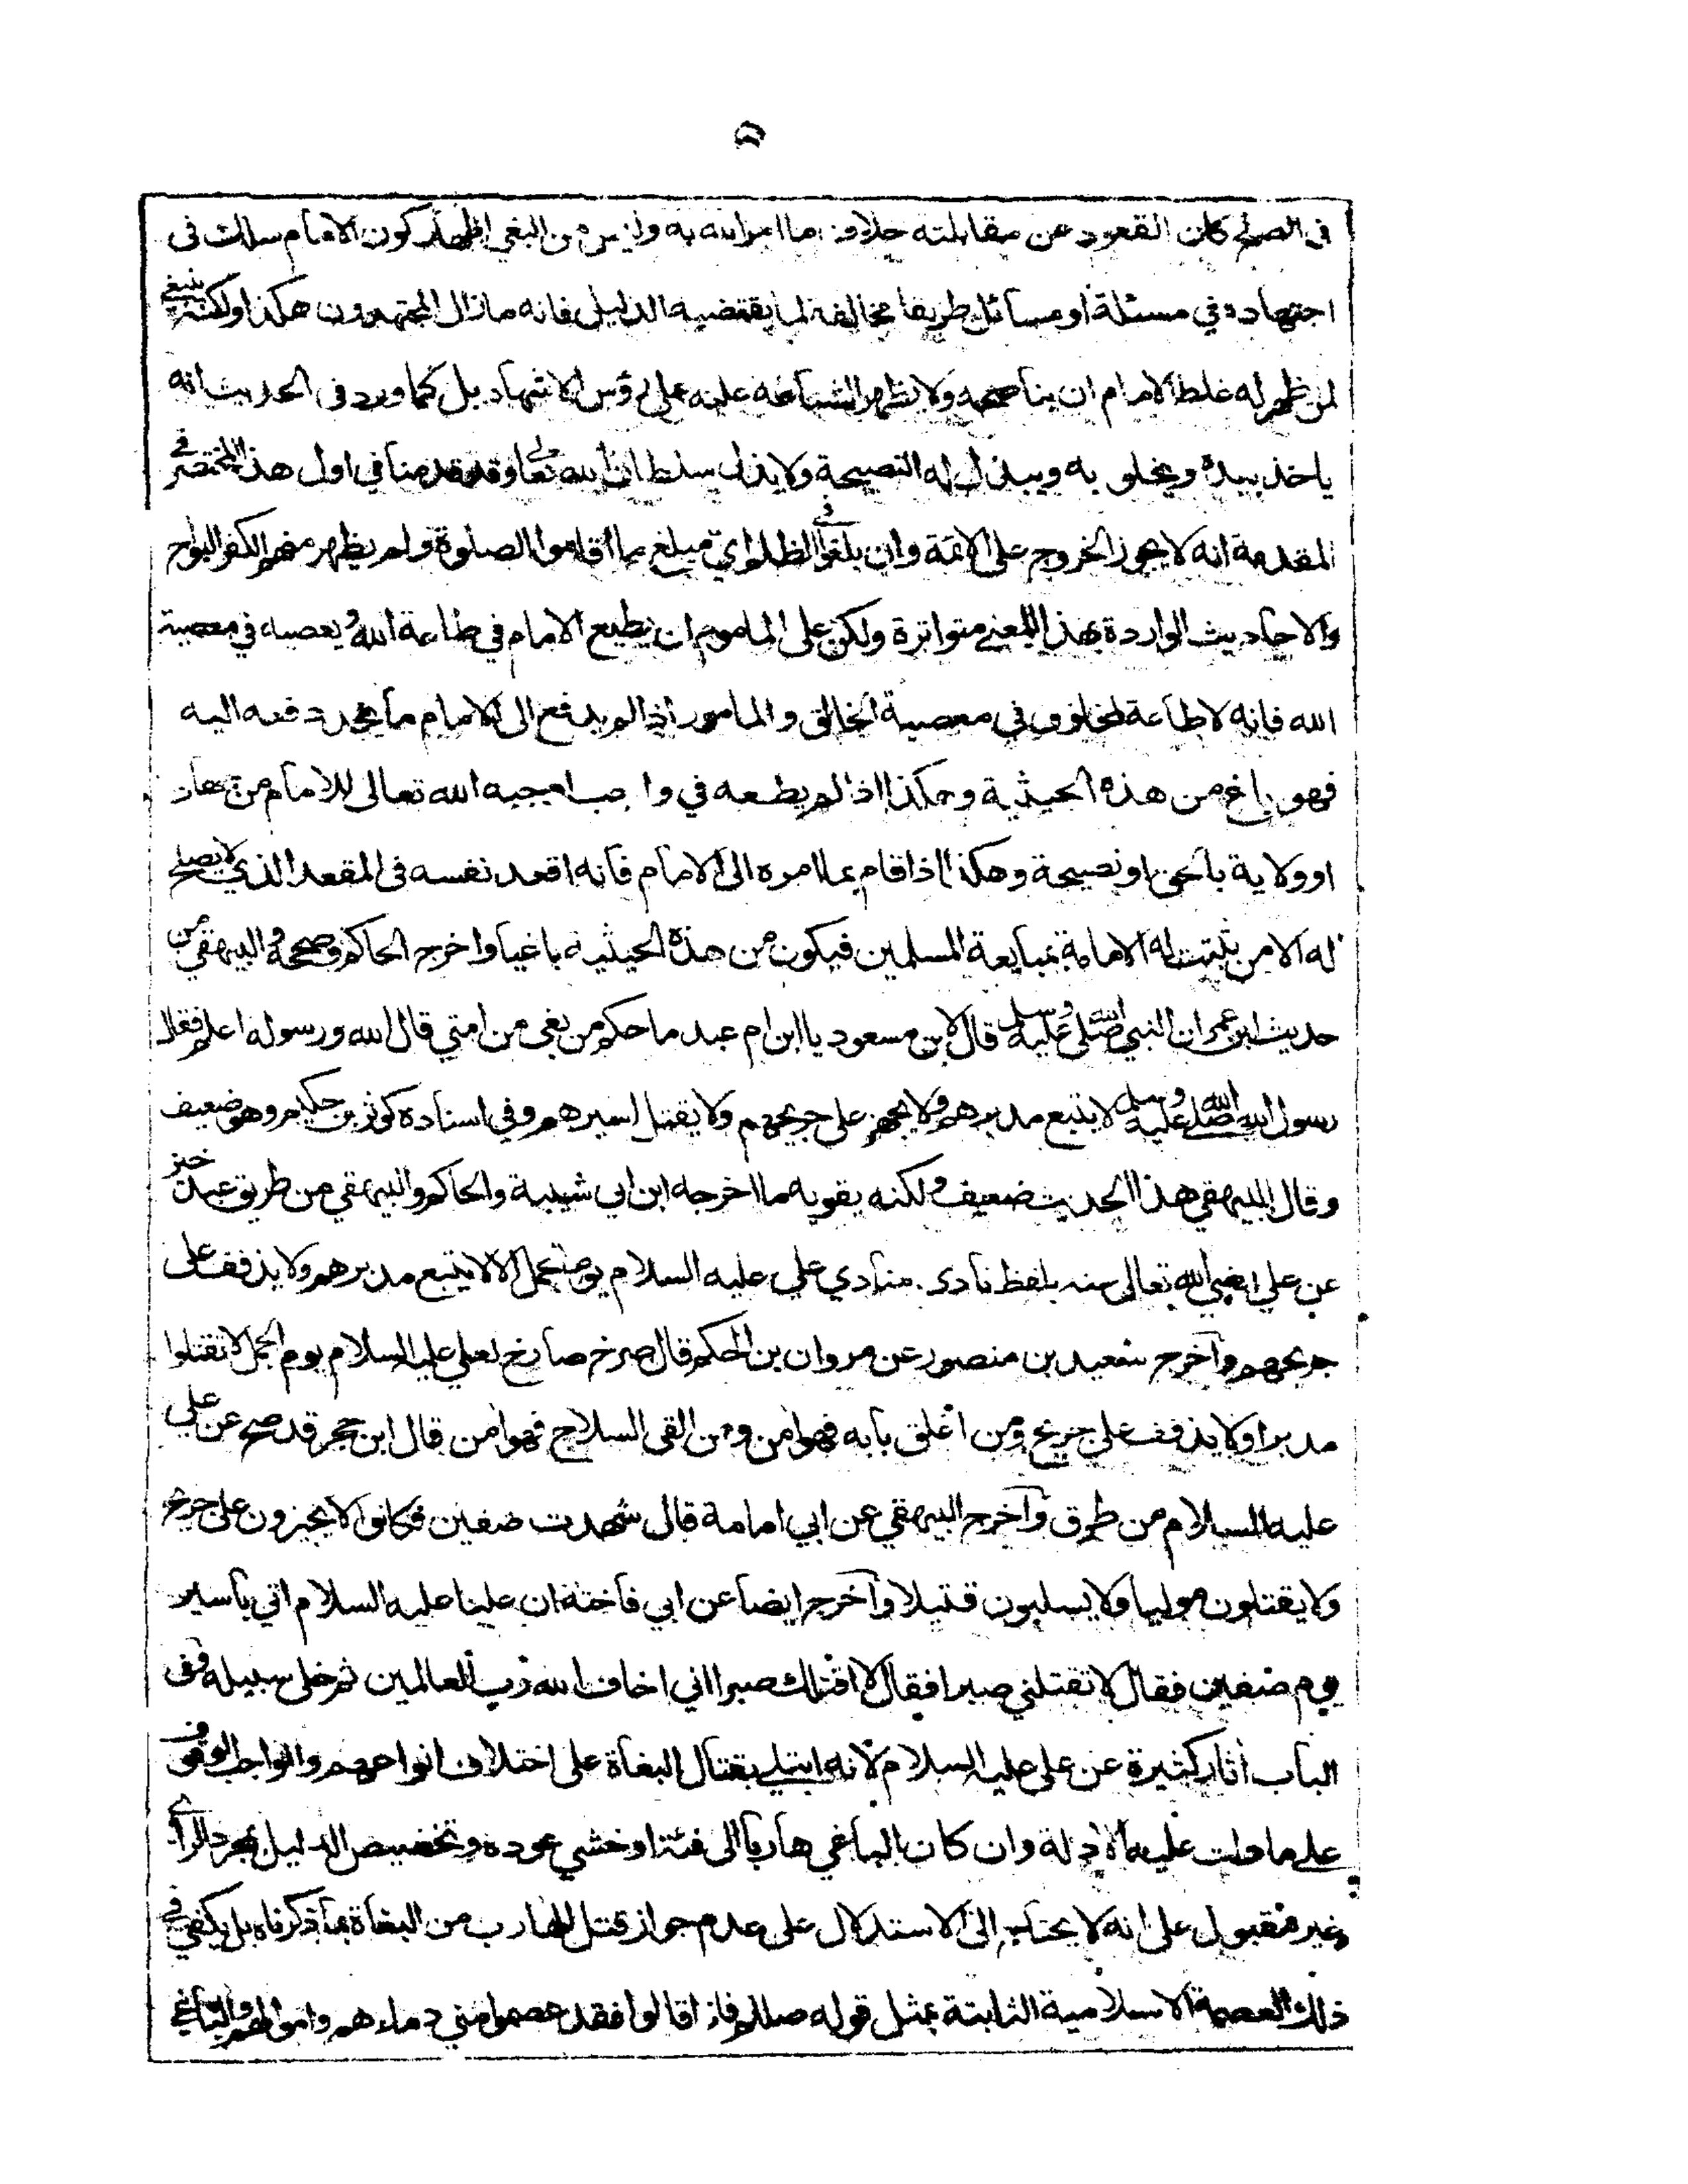 ۵
في الصلح كان القعود عن مقاتلته خلاف ما امر الله به وليس من البغي اظهار كون الامام سلك في
اجتهاده في مسئلة او مسائل طريقا مخالفة لما يقتضيه الدليل فانه ما زال المجتهدون هكذا ولكنه ينبغي
لمن ظهر له غلط الامام ان يناصحه ولا يظهر الشناعة عليه على رؤس الاشهاد بل كما ورد في الحديث انه
ياخذ بيده ويخلو به ويبذل له النصيحة ولا يذل سلطان الله تعالى وقد قدمنا في اول هذا المختصر في
المقدمة انه لا يجوز الخروج على الائمة وان بلغوا في الظلم اي مبلغ ما اقاموا الصلوة ولم يظهر منهم الكفر البواح
والاحاديث الواردة بهذا المعنى متواترة ولكن على الماموم ان يطيع الامام في طاعة الله ويعصيه في معصية
الله فانه لا طاعة لمخلوق في معصية الخالق والمامور اذا لم يدفع الى الامام ما يجب دفعه اليه
فهو باغ من هذه الحيثية وهكذا اذا لم يطعه في واجب اوجبه الله تعالى للامام من جهاد
او ولاية بالحق او نصيحة وهكذا اذا قام بما امره الى الامام فانه اقعد نفسه في المقعد الذي لا يصلح
له الا من ثبتت له الامامة بمبايعة المسلمين فيكون من هذه الحيثية باغيا واخرج الحاكم وصححه والبيهقي من
حديث ابن عمر ان النبي صلى الله عليه وسلم قال لابن مسعود يا ابن ام عبد ما حكم من بغى من امتي قال الله ورسوله اعلم فقال
رسول الله صلى الله عليه وسلم لا يتبع مدبرهم ولا يجهز على جريحهم ولا يقتل اسيرهم وفي اسناده كوثر بن حكيم وهو ضعيف
وقال البيهقي هذا الحديث ضعيف ولكنه يقويه ما اخرجه ابن ابي شيبة والحاكم والبيهقي من طريق عبد خير
عن علي رضي الله تعالى عنه بلفظ نادى منادي علي عليه السلام يوم الجمل الا لا يتبع مدبرهم ولا يذفف على
جريحهم وآخرج سعيد بن منصور عن مروان بن الحكم قال صرخ صارخ لعلي عليه السلام يوم الجمل لا تقتلوا
مدبرا ولا يذفف على جريح ومن اغلق بابه فهو امن ومن القى السلاح فهو امن قال ابن حجر قد صح عن علي
عليه السلام من طرق وآخرج البيهقي عن ابي امامة قال شهدت صفين فكانوا لا يجيزون على جريح
ولا يقتلون موليا ولا يسلبون قتيلا وآخرج ايضا عن ابي فاختة ان عليا عليه السلام اتي باسير
يوم صفين فقال لا تقتلني صبرا فقال لا اقتلك صبرا اني اخاف الله رب العالمين ثم خلى سبيله وفي
الباب اثار كثيرة عن علي عليه السلام لانه ابتلي بقتال البغاة على اختلاف انواعهم والواجب الوقوف
على ما دلت عليه الادلة وان كان الباغي هاربا الى فئة او خشي عوده وتخصيص الدليل بمجرد الرأي
غير مقبول على انه لا يحتاج الى الاستدلال على عدم جواز قتل الهارب من البغاة بما ذكرناه بل يكفي في
ذلك العصمة الاسلامية الثابتة بمثل قوله صللم فاذا قالوا فقد عصموا مني دماءهم واموالهم والباغي